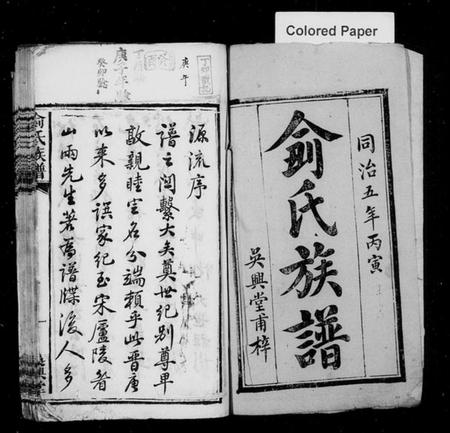 Colored Paper
同治五年丙寅
俞氏族譜
吳興堂甫梓
庚午
源流序
譜之関繫大矣奠世紀別尊卑
敦親睦定名分端賴乎此晋唐
以来多譔家紀至宋廬陵眉
山兩先生著為譜牒後人多
俞氏族譜